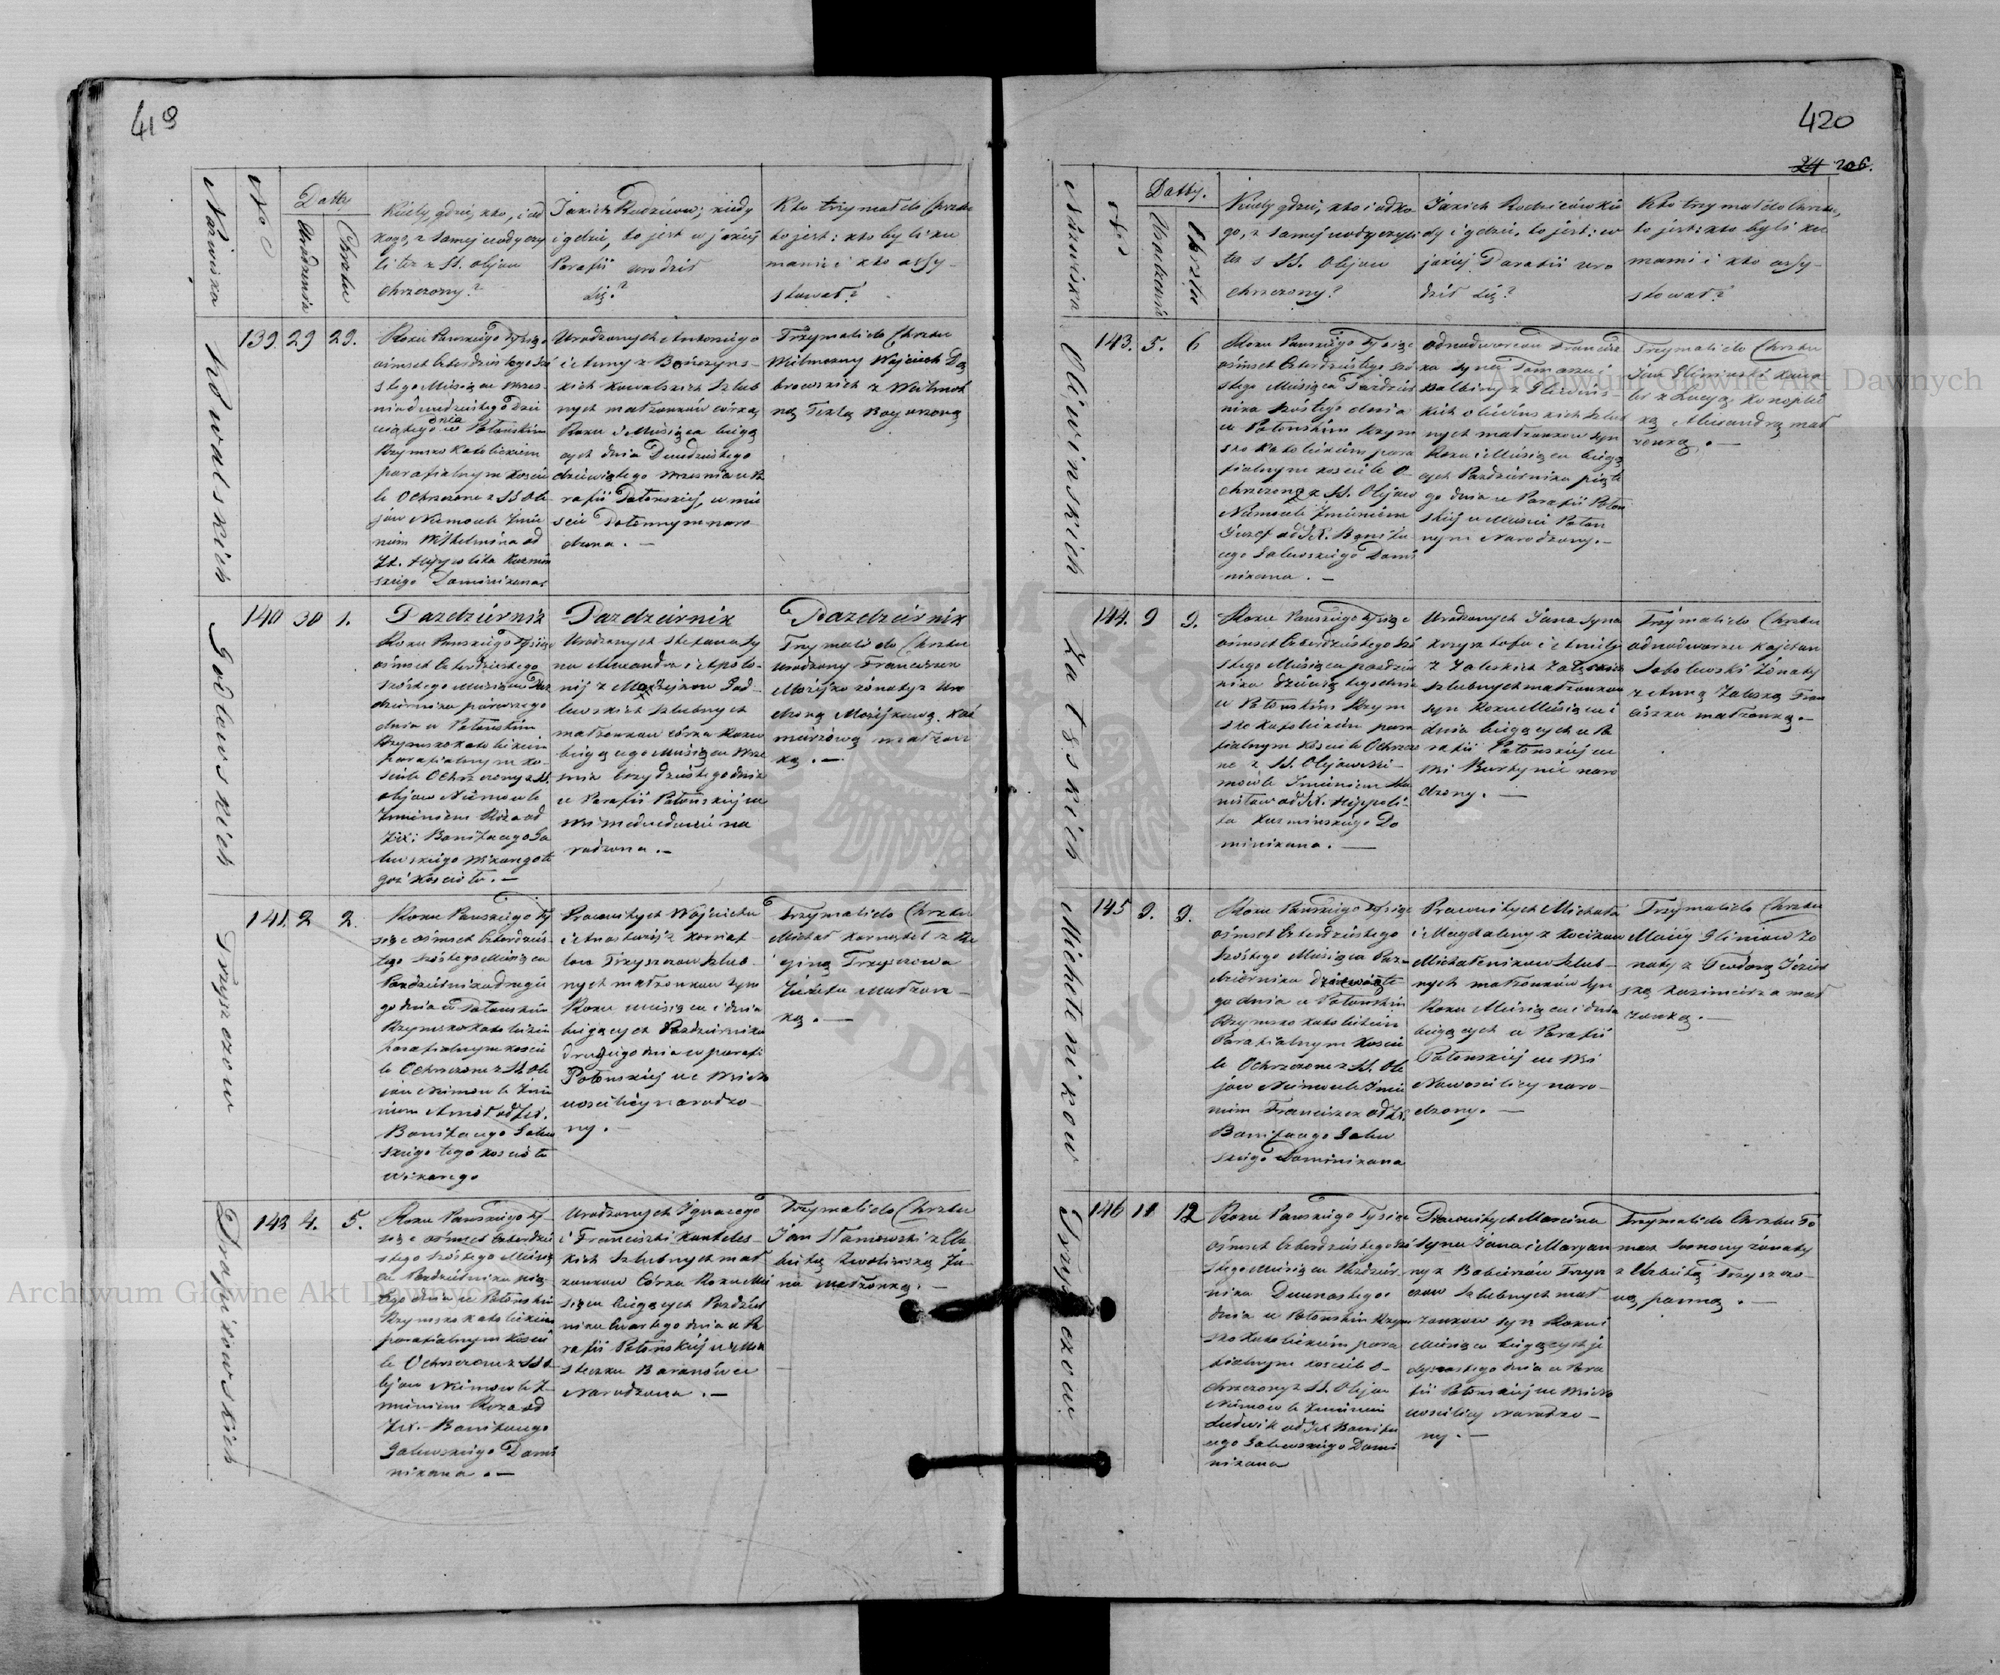 419
Nazwiska
No
Datty
Urodzenia
Chrztu
Kiedy, gdzie, kto, i od
kogo, z samej wody czy
li też z SS. olejów
chrzczony?
Jakich Rodziców; kiedy
i gdzie, to jest w jakiej
Parafii urodził
się?
Kto trzymał do Chrztu
to jest: kto byli ku
mami i kto assy-
stował?
Kowalskich
139. 29 29.
Roku Pańskiego Tysiąc
ośmset Czterdziestego Szó
stego Miesiąca Wrześ
nia dwudziestego Dzie
wiątego dnia w Połońskim
Rzymsko Katolickim
parafialnym Koście
le Ochrzczona z SS Ole
jów Niemowle Imie
niem Wilhelmina od
Urodzonych Antoniego
i Anny z
kich Kowalskich szlub
nych małżonków córka
Roku i Miesiąca bieżą
cych dnia Dwudziestego
dziewiątego Września w Pa
rafii Połońskiej, w mie
ście Połonnym naro
dzona. —
Trzymali do Chrztu
Wielmożny Wojciech Dą
browskich z Wielmoż
ną Teklą
Godlewskich
140 30 1.
Pazdziernik
Roku Pańskiego Tysiąc
ośmset Czterdziestego
szóstego Miesiąca Paz
dziernika pierwszego
dnia w Połońskim
Rzymsko katolickim
parafialnym ko-
ściele Ochrzczony z SS.
olejów Niemowle
Imieniem Róża od
JX: Bonifacego Ga
lewskiego Wikarego te
goż Kościoła. —
Pazdziernik
Urodzonych Stefana sy
na Alexandra i Apolo-
nij z Możejków God-
lewskich szlubnych
małżonków córka Roku
bieżącego Miesiąca Wrze
śnia trzydziestego dnia
w Parafii Połońskiej we
Wsi Medwedówce na
rodzona. —
Pazdziernik
Trzymali do Chrztu
Urodzony Franciszek
Możejko żonaty z Uro
dzoną Możejkową Kaź
mierzową małżon
ką. —
Tryszczów
141. 2 2.
Roku Pańskiego Ty
siąc ośmset Czterdzies
tego szóstego Miesiąca
Pazdziernika drugie
go dnia w Połońskim
Rzymsko Katolickim
parafialnym Koście
le Ochrzczone z SS Ole
jów Niemowle Imie
niem od JX.
Bonifacego Galew
skiego tego kościoła
Wikarego
Pracowitych Wojciecha
i Anastazij z
Tryszczów szlub-
nych małżonków syn
Roku miesiąca i dnia
bieżących Pazdziernika
drugiego dnia w parafi
Połońskiej we Wsi No
wosielicy narodzo-
ny. —
Trzymali do Chrztu
Michał z Re
giną Tryszczowa
Józefa Małżon-
ką. —
Drapikowskich
142 4. 5.
Roku Pańskiego Ty-
siąc ośmset Czterdzie
stego szóstego Miesią
ca Pazdziernika pią
tego dnia w Połońskim
Rzymsko katolickim
parafialnym Koście
le Ochrzczone z SS O-
lejów Niemowle I-
mieniem Róża od
JX. Bonifacego
Galewskiego Domi
nikana. —
Urodzonych Ignacego
i Franciszki
kich szlubnych mał
żonków Córka Roku Mie
siąca bieżących Pazdzier
nika Czwartego dnia w Pa
rafii Połońskiej w Mia
steczku Baranówce
Narodzona. —
Trzymali do Chrztu
Jan z Elż
bietą Ja-
na małżonką. —
420
24 206.
Nazwiska
No
Datty.
Urodzenia
Chrztu
Kiedy gdzie, kto i od ko
go, z samej wody czyli
też z SS. Olejów
chrzczony?
Jakich Rodziców kie
dy i gdzie, to jest: w
jakiej Parafii uro
dził się?
Kto trzymał do Chrztu,
to jest: kto byli ku
mami i kto assy-
stował?
Oliwińskich
143. 5. 6
Roku Pańskiego Tysiąc
ośmset Czterdziestego Szó
stego Miesiąca Pazdzier
nika szóstego dnia
w Połońskim Rzym
sko Katolickim para
fialnym kościele O-
chrzczony z SS. Olejów
Niemowle Imieniem
Józef od JX. Bonifa
cego Galewskiego Domi
nikana. —
Odnodworców Francisz
ka syna Tomasza i
Balbiny z
kich Oliwińskich szlub
nych małżonków syn
Roku i Miesiąca bieżą
cych Pazdziernika piąte
go dnia w Parafii Połoń
skiej w Mieście Połon
nym Narodzony. —
Trzymali do Chrztu
Jan kawa
ler z Łucyą
ką Alexandra mał
żonką. —
Załęskich
144. 9 9.
Roku Pańskiego Tysiąc
ośmset Czterdziestego Szó
stego Miesiąca pazdzier
nika dziewiątego dnia
w Połońskim Rzym
sko Katolickim para
fialnym Kościele Ochrzczo
ne z SS. Olejów Nie-
mowle Imieniem Sta
nisław od JX. Hippoli-
ta Kuzmińskiego Do
minikana. —
Urodzonych Jana syna
Krzysztofa i Emilij
z Zaleskich Załęskich
szlubnych małżonków
syn Roku Miesiąca i
dnia bieżących w Pa
rafii Połońskiej we
Wsi Burtynie naro
dzony. —
Trzymali do Chrztu
odnodworzec Kajetan
Sobolewski żonaty
z Anną Zaleską Fran
ciszka małżonką. —
Michelenikow
145 9. 9.
Roku Pańskiego Tysiąc
ośmset Czterdziestego
Szóstego Miesiąca Paz
dziernika dziewiąte
go dnia w Połońskim
Rzymsko katolickim
Parafialnym Koście
le Ochrzczone z SS. Ole
jów Niemowle Imie
niem Franciszek od JX.
Bonifacego Galew
skiego Dominikana
Pracowitych Michała
i Magdaleny z
szlub-
nych małżonków syn
Roku Miesiąca i dnia
bieżących w Parafii
Połońskiej we Wsi
Nowosielicy naro-
dzony. —
Trzymali do Chrztu
Maciej żo
naty z Teodorą
ską Kazimierza mał
żonką. —
Tryszczów
146 11 12
Roku Pańskiego Tysiąc
ośmset Czterdziestego Szó
stego Miesiąca Pazdzier
nika Dwunastego
dnia w Połońskim Rzym
sko Katolickim para
fialnym kościele O-
chrzczony z SS. Olejów
Niemowle Imieniem
Ludwik od JX Bonifa
cego Galewskiego Domi
nikana
Pracowitych Marcina
syna Jana i Maryan
ny z Trysz
czów szlubnych mał
żonków syn Roku i
Miesiąca bieżących je
dynastego dnia w Para
fii Połońskiej we Wsi No
wosielicy Narodzo-
ny. —
Trzymali do Chrztu To
masz żonaty
z Elżbietą Tryszczo-
wą panną. —
Archiwum Główne Akt Dawnych
Archiwum Główne Akt Dawnych